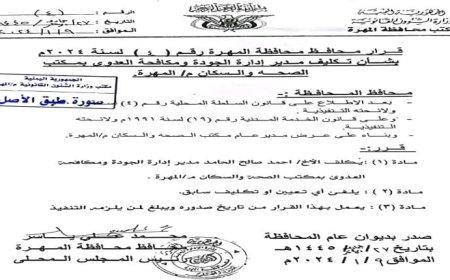 الجمهورية اليمنية
وزارة الشئون القانونية
مكتب محافظة المهرة
رقم: (٤)
الموافق: ٢٠٢٤/١/٩م
قرار محافظ محافظة المهرة رقم (٤) لسنة ٢٠٢٤م
بشأن تكليف مدير إدارة الجودة ومكافحة العدوى بمكتب
الصحة والسكان م/المهرة.
الجمهورية اليمنية
مكتب وزارة الشئون القانونية م/المهرة
صورة طبق الأصل
محافظ المحافظة :-
- بعد الإطلاع على قانون السلطة المحلية رقم (٤)
ولائحته التنفيذية.
- وعلى قانون الخدمة المدنية رقم (١٩) لسنة ١٩٩١م ولائحته
التنفيذية.
- وبناء على عرض مدير عام مكتب الصحة والسكان م/المهرة.
قرر:-
مادة (١): يكلف الأخ/ احمد صالح الحامد مدير إدارة الجودة ومكافحة
العدوى بمكتب الصحة والسكان م/المهرة
مادة (٢): يلغى أي تعيين او تكليف سابق.
مادة (٣): يعمل بهذا القرار من تاريخ صدوره ويبلغ لمن يلزمه التنفيذ
صدر بديوان عام المحافظة
بتاريخ ٢٧/ /١٤٤٥هـ
الموافق ٢٠٢٤/١/٩م
محمد علي ياسر
محافظ محافظة المهرة
رئيس المجلس المحلي